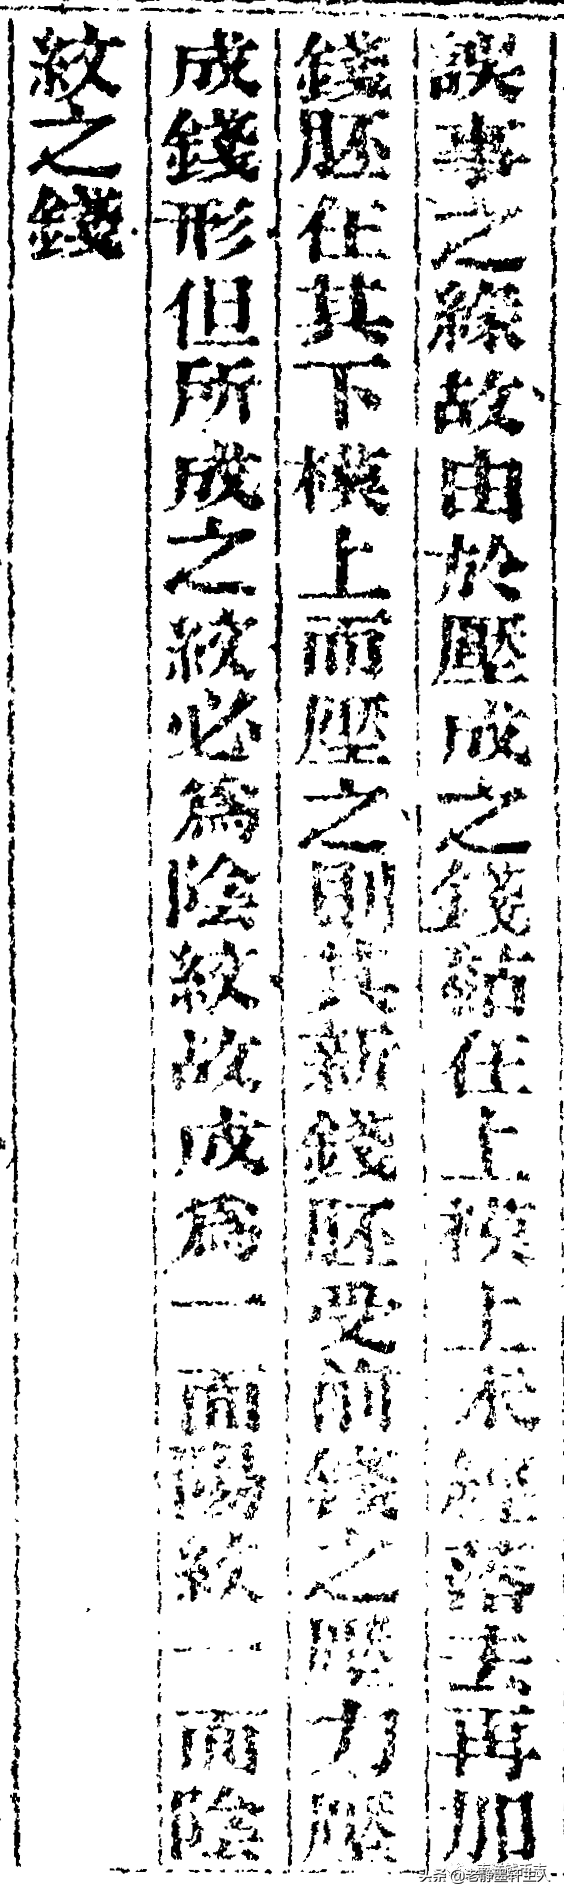 誤事之緣故由於壓成之錢黏住上模上未經落去再加
錢胚在其下模上而壓之則其新錢胚受前錢之壓力壓
成錢形但所成之紋必為陰紋故成為一面陽紋一面陰
紋之錢
頭条 @老靜臺轩主人